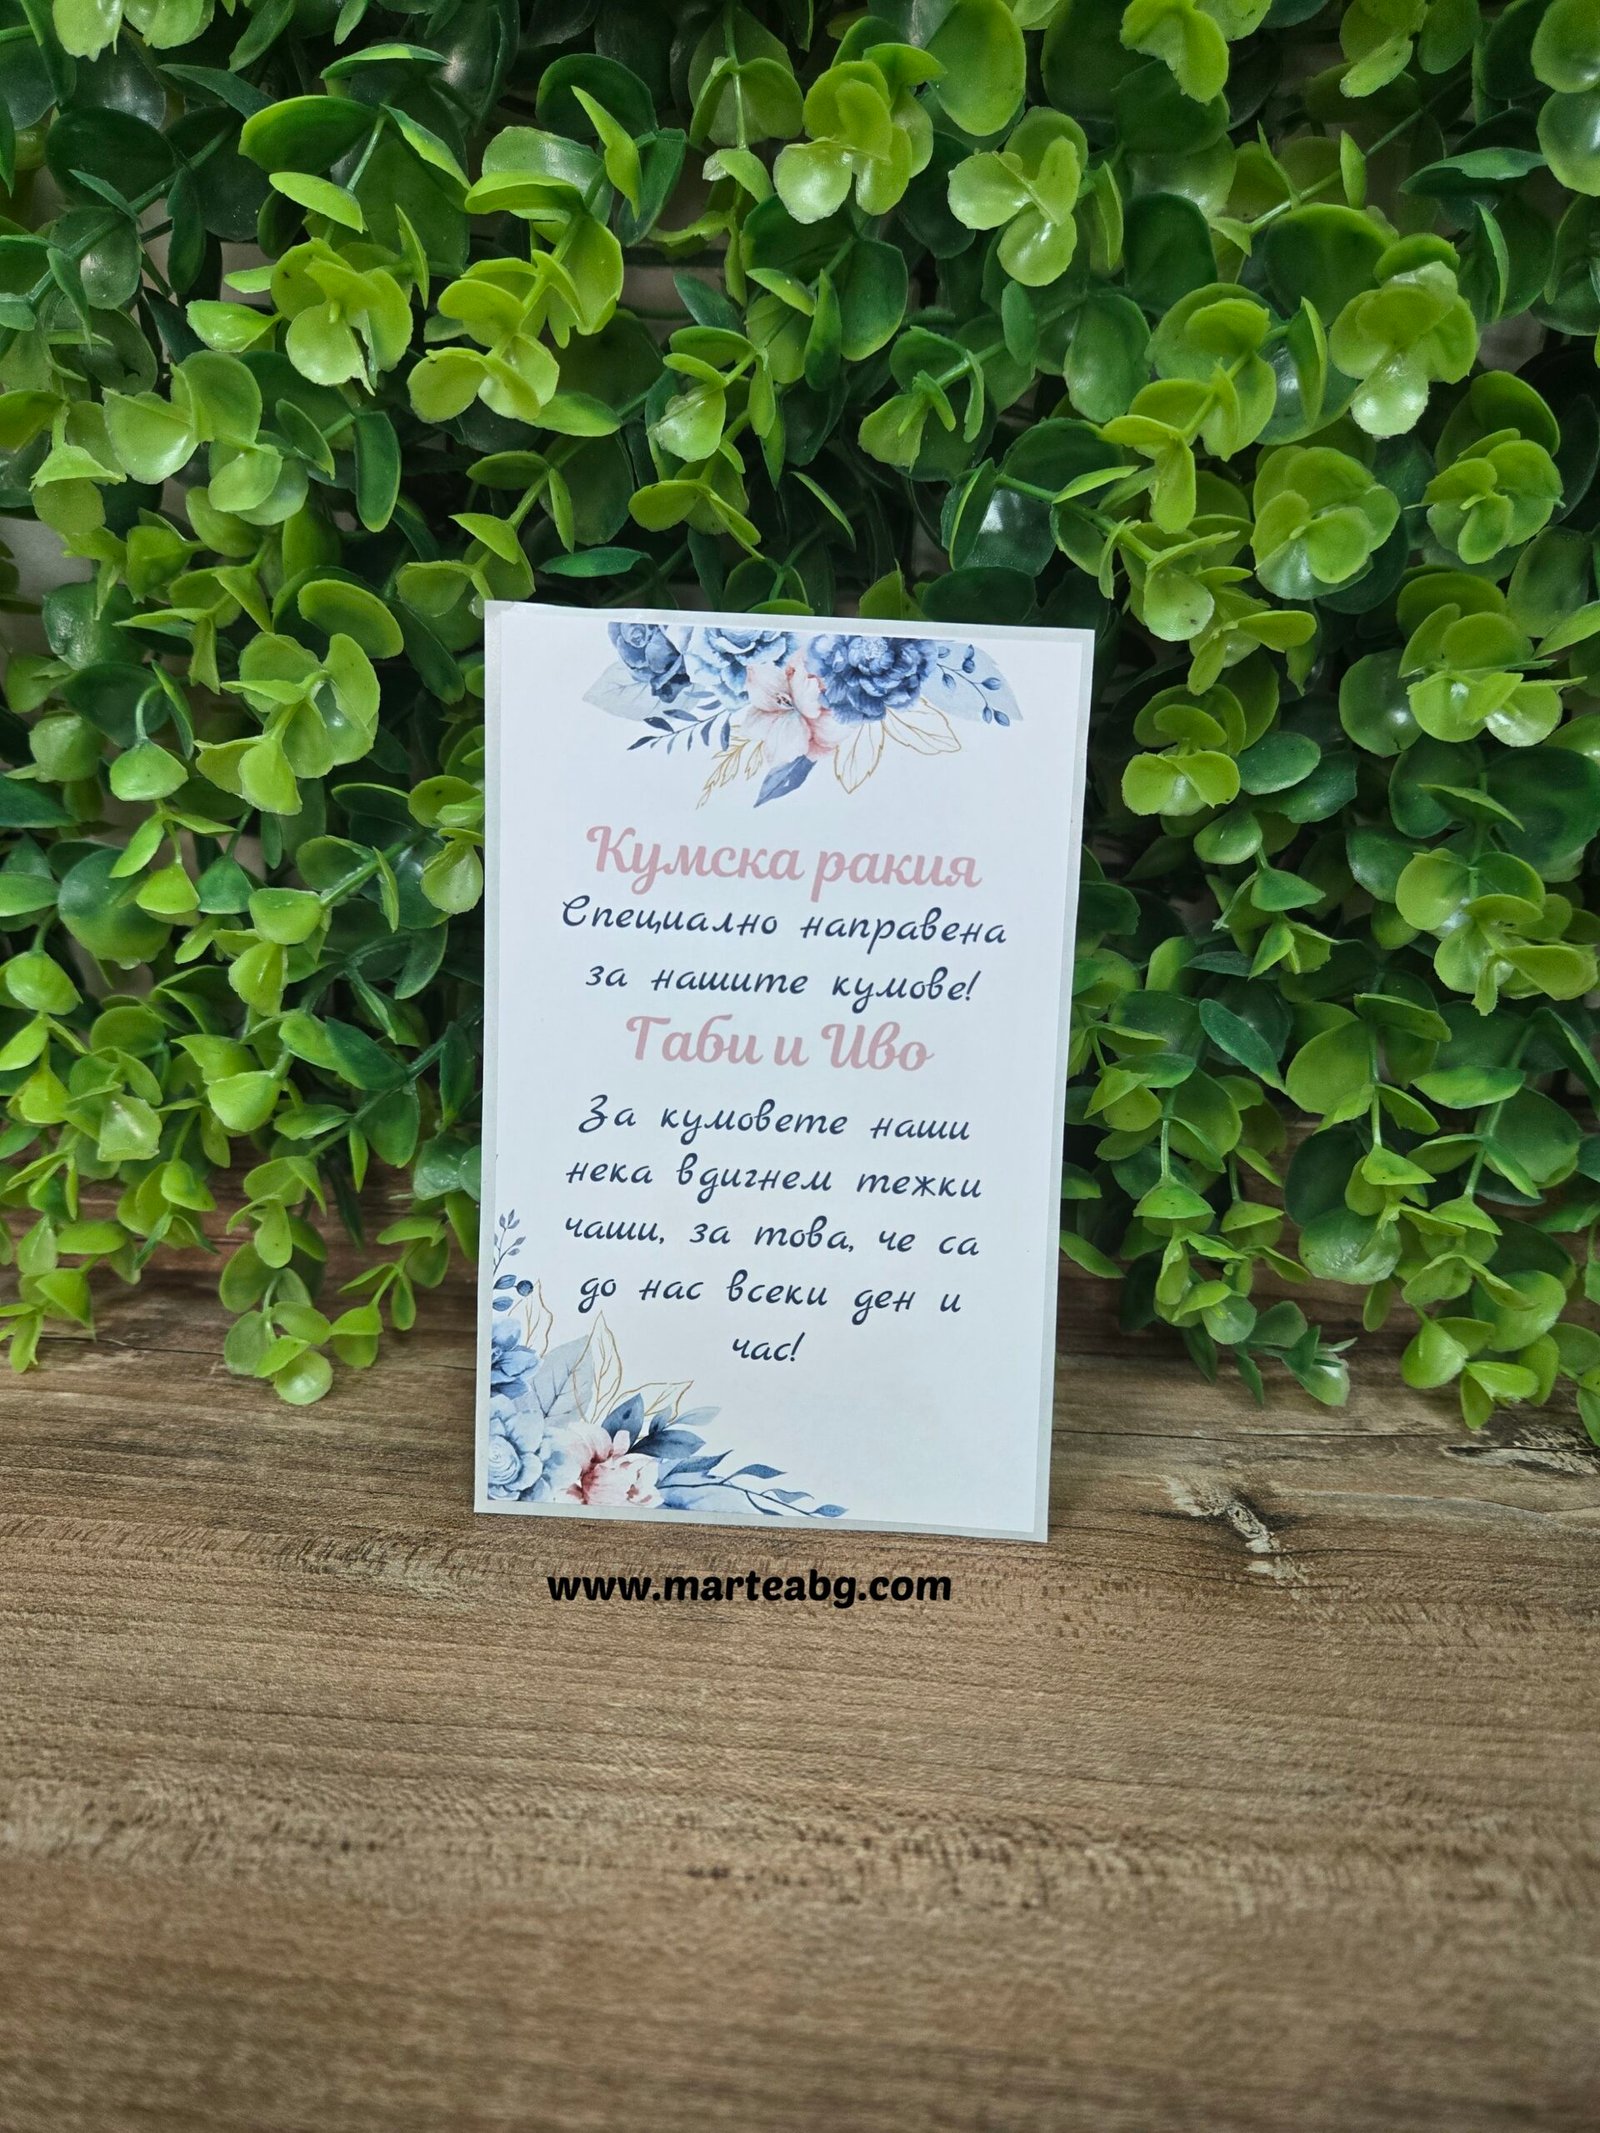 Кумска ракия
Специално направена
за нашите кумове!
Габи и Иво
За кумовете наши
нека вдигнем тежки
чаши, за това, че са
до нас всеки ден и
час!
www.marteabg.com